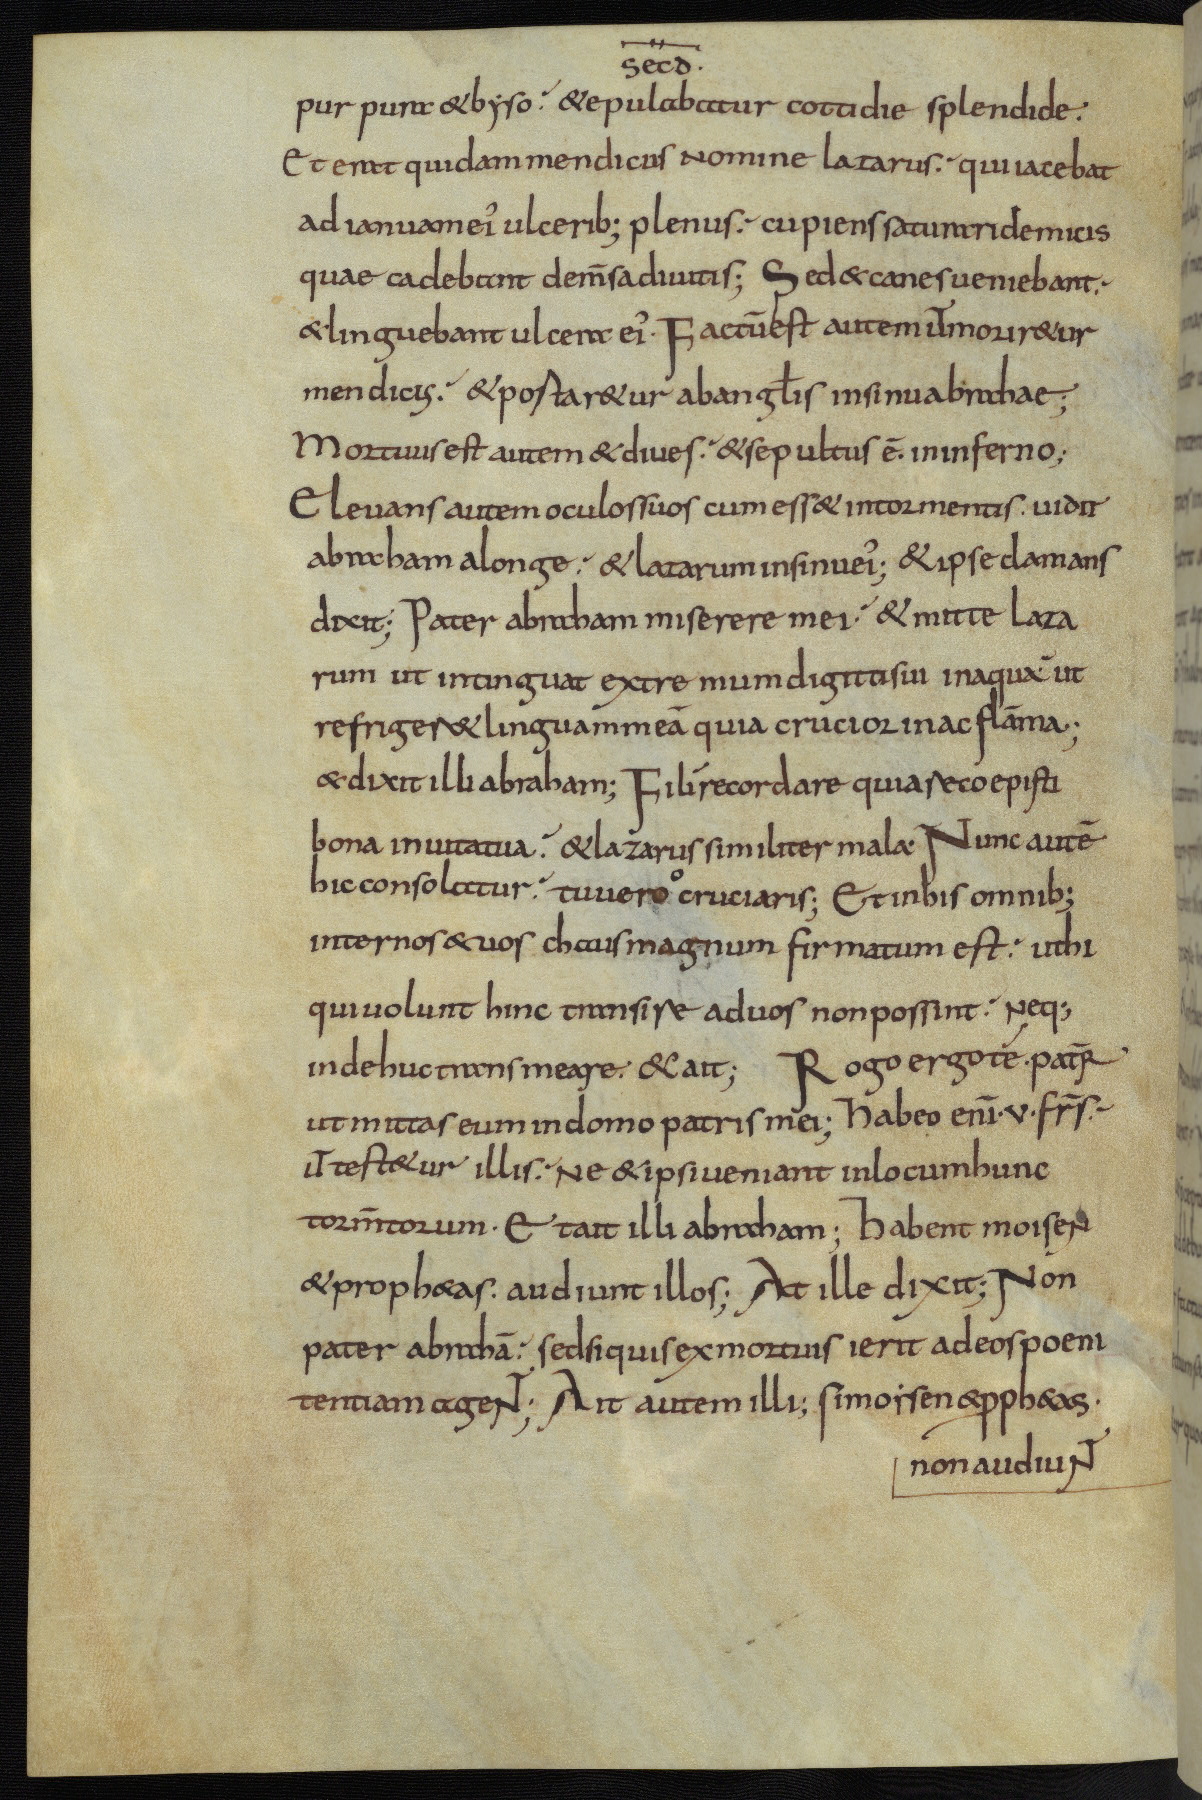 secd̄.
purpura & byso. & epulabatur cottidie splendide.
Et erat quidam mendicus nomine lazarus. qui iacebat
ad ianuam ei' ulcerib; plenus. cupiens saturari de micis
quae cadebant de m̄sa diuitis; Sed & canes ueniebant.
& linguebant ulcera ei'. Factū est autem ut̄ morir&ur
mendicus. & portar&ur ab angłis in sinu abrahae;
Mortuus est autem & diues. & sepultus ē. in inferno;
Eleuans autem oculos suos cum ess& in tormentis. uidit
abraham a longe. & lazarum in sinu ei'; & ipse clamans
dixit; Pater abraham miserere mei. & mitte laza
rum ut intinguat extremum digiti sui in aquā ut
refriger& linguam meā quia crucior in ac flāma;
& dixit illi abraham; Fili recordare quia recoepisti
bona in uita tua. & lazarus similiter mala. Nunc autē
hic consolatur. tu uero cruciaris; Et in his omnib;
inter nos & uos chaus magnum firmatum est. ut hi
qui uolunt hinc transire ad uos non possint. neq;
inde huc transmeare. & ait; Rogo ergo te. pat̄R
ut mittas eum in domo patris mei; habeo enī. v. fr̄s.
ut̄ test&ur illis. ne & ipsi ueniant in locum hunc
torm̄torum. Et ait illi abraham; habent moisen
& proph&as. audiunt illos; At ille dixit; Non
pater abrahā. sed si quis ex mortuis ierit ad eos poeni
tentiam agent; Ait autem illi; si moysen & pph&as.
non audiunt